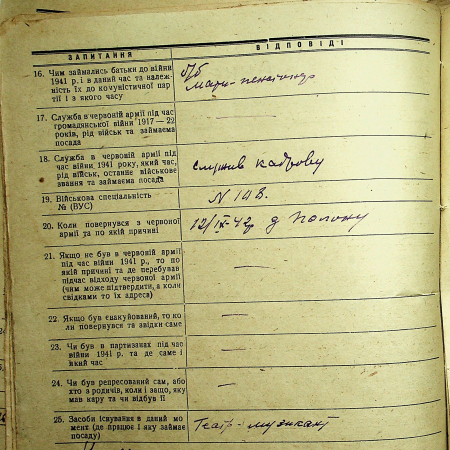 ЗАПИТАННЯ
ВІДПОВІДІ
16. Чим займались батьки до війни
1941 р. і в даний час та належ-
ність їх до комуністичної пар
тії і з якого часу
б/б
Мати-пенсіонер
17. Служба в червоній армії під час
громадянської війни 1917—22
років, рід військ та займаєма
посада
—
18. Служба в червоній армії під
час війни 1941 року, який час,
рід військ, останнє військове
звання та займаєма посада
служив кадрову
19. Військова спеціальність
№ (ВУС)
20. Коли повернувся з червоної
армії та по якій причині
12/IX-42р з полону
21. Якщо не був в червоній армії
під час війни 1941 р., то по
якій причині та де перебував
підчас відходу червоної армії
(чим може підтвердити, а коли
свідками то їх адреса)
—
22. Якщо був єнакуйований, то ко
ли повернувся та звідки саме
—
23. Чи був в партизанах під час
війни 1941 р. та де саме і
який час
—
24. Чи був репресований сам, або
хто з родичів, коли і защо, яку
мав кару та чи відбув її
—
25. Засоби існування в даний мо
мент (де працює і яку займає
посаду)
Театр - музикант